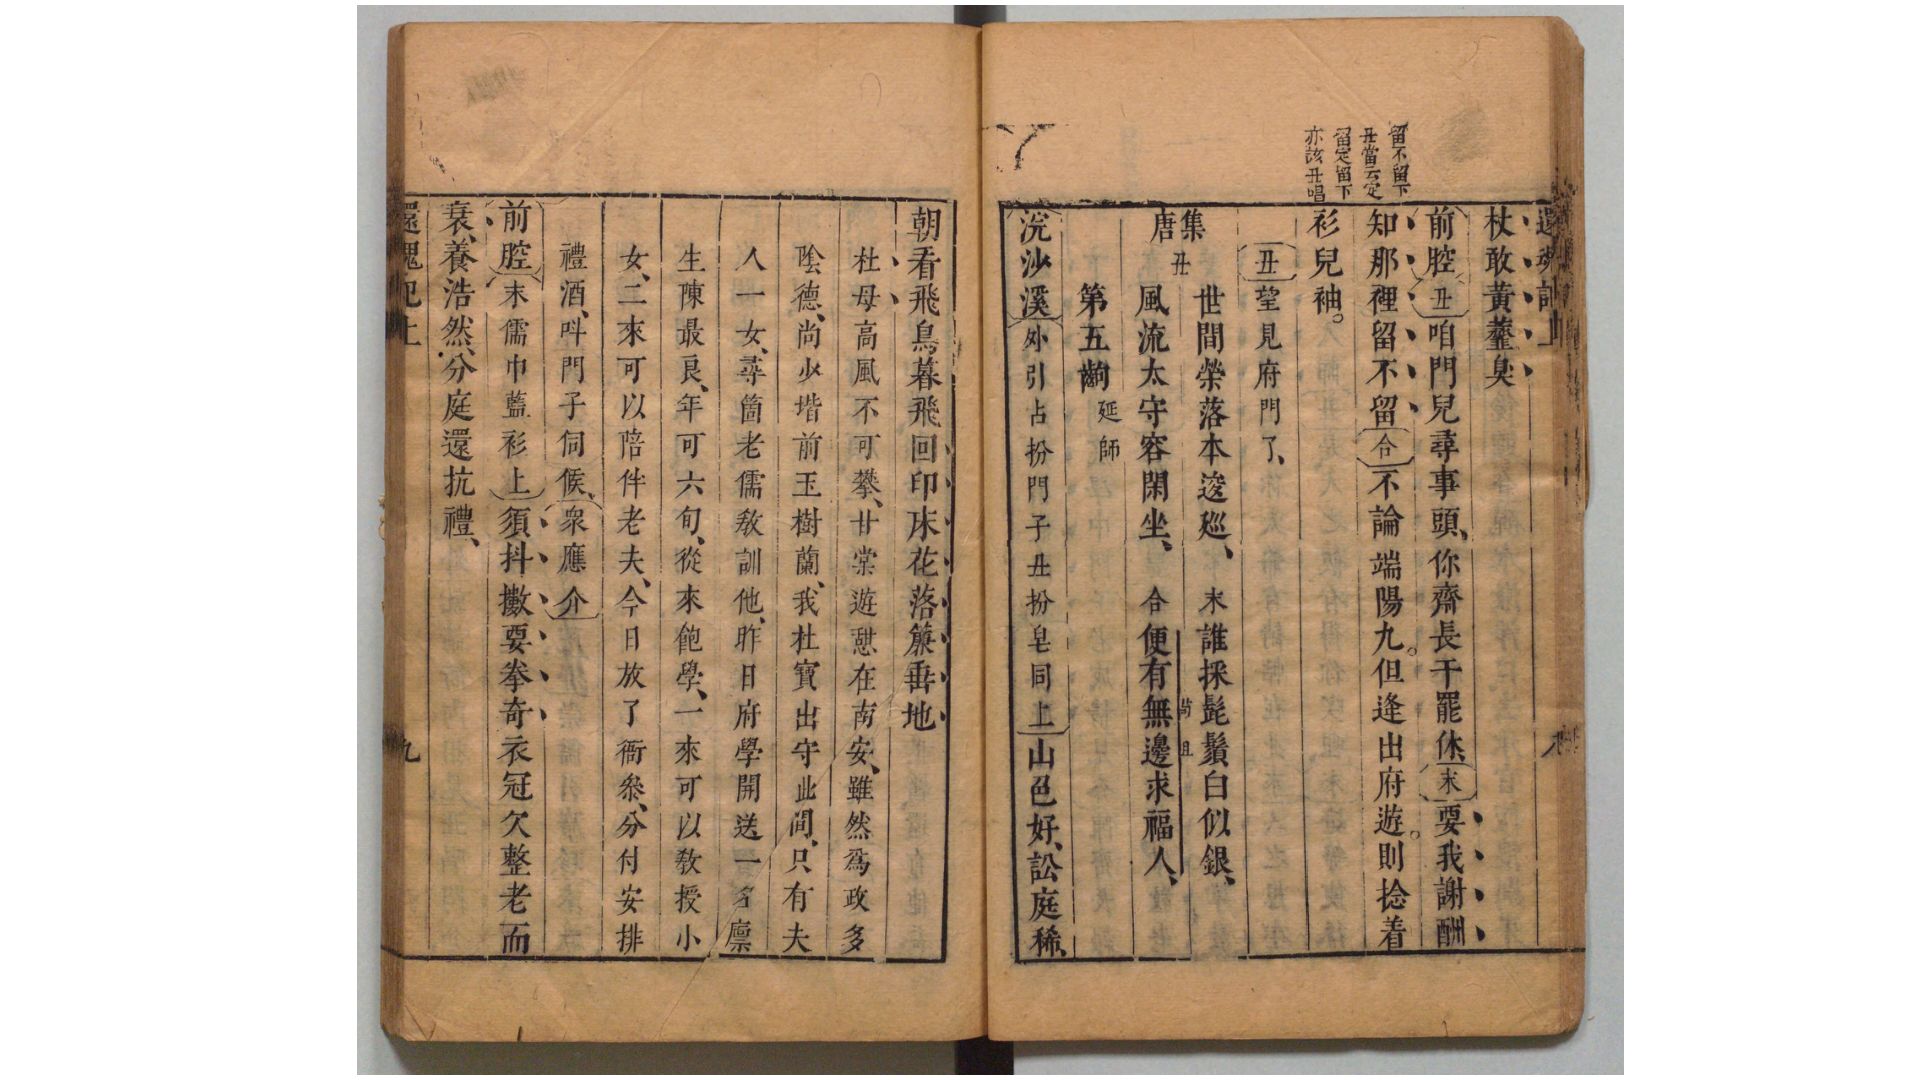 留不留下
丑當云定
留定留下
亦該丑唱
還魂記上
杖敢黃虀臭
前腔丑咱門兒尋事頭、你齋長干罷休、末要我謝酬
知那裡留不留合不論端陽九。但逢出府遊。則捻着
衫兒袖。
丑望見府門了、
集唐
丑世間榮落本逡巡、末誰採髭鬚白似銀、
風流太守容閑坐、合便有無邊求福人、
尚且
第五齣延師
浣沙溪外引占扮門子丑扮皂同上山色好、訟庭稀、
朝看飛鳥暮飛回印床花落簾垂地
杜母高風不可攀、甘棠遊憩在南安、雖然爲政多
陰德、尚少堦前玉樹蘭、我杜寶出守此間、只有夫
人一女、尋箇老儒敎訓他、昨日府學開送一名廪
生陳最良、年可六旬、從來飽學、一來可以敎授小
女、二來可以陪伴老夫、今日放了衙叅、分付安排
禮酒、呌門子伺候、衆應介
前腔末儒巾藍衫上須抖擻要拳奇衣冠欠整老而
衰、養浩然、分庭還抗禮、
還魂記上
九